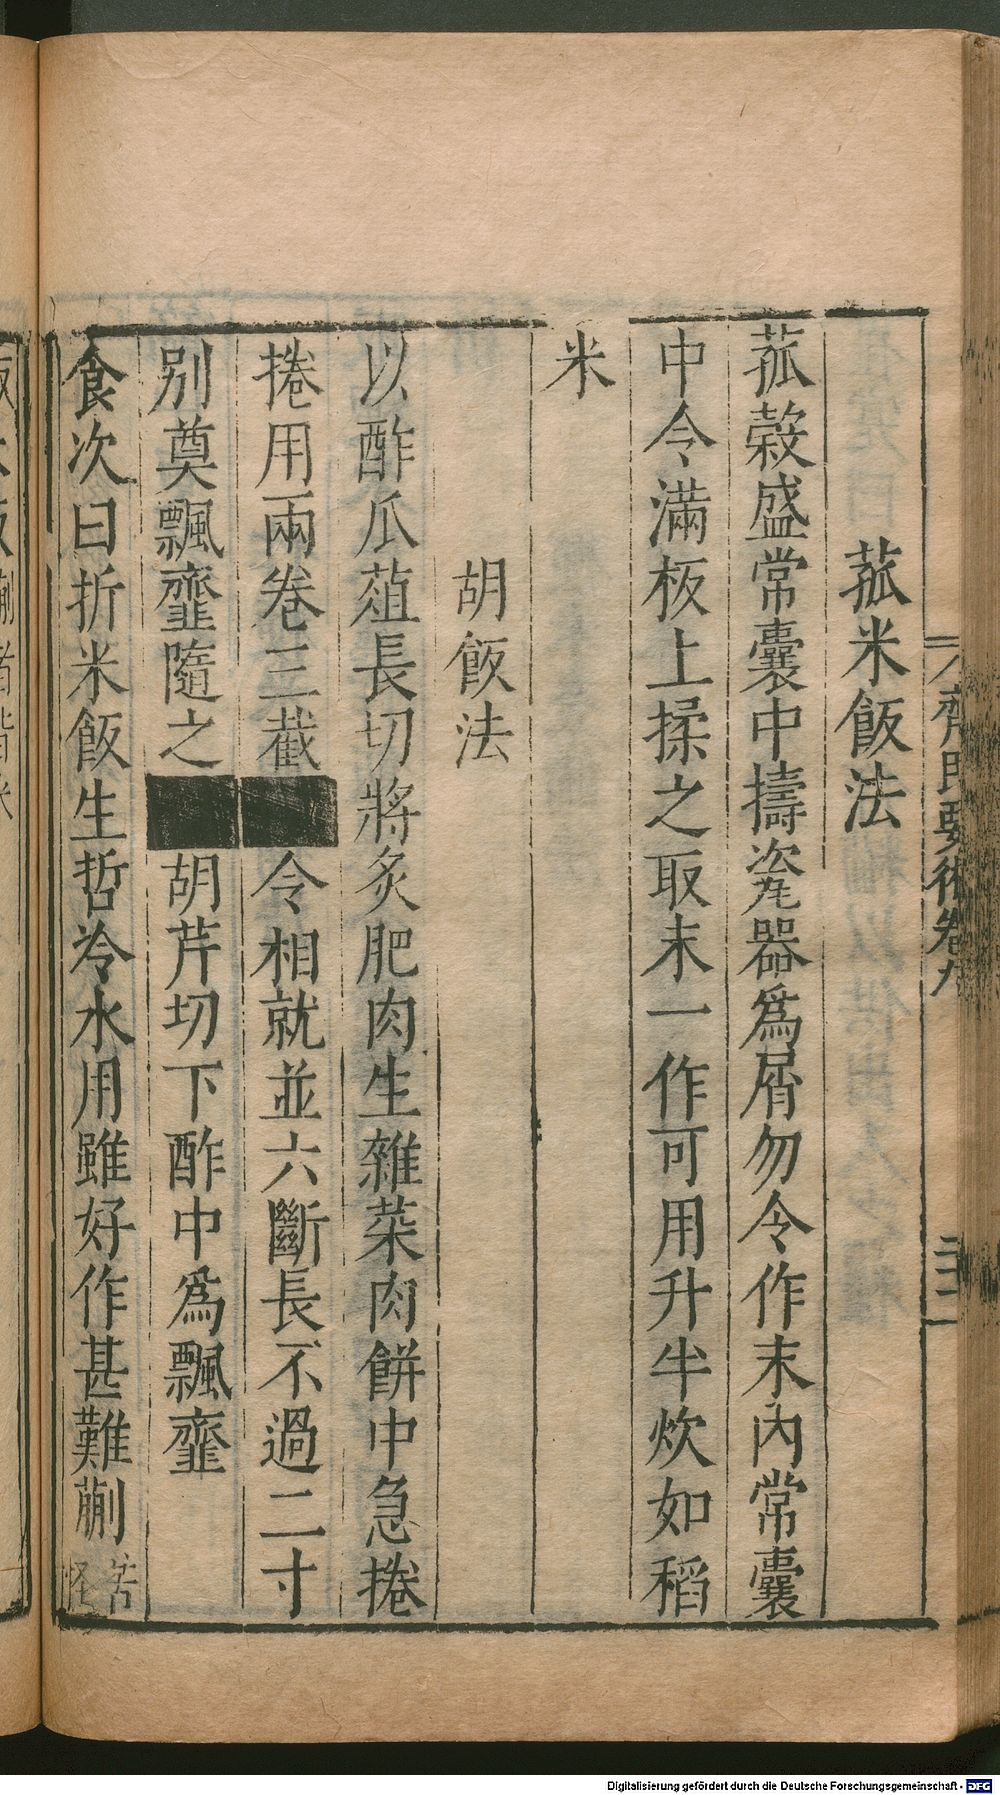 菰米飯法
菰穀盛韋囊中擣瓷器爲屑勿令作末內韋囊
中令滿板上揉之取末一作可用升半炊如稻
米
胡飯法
以酢瓜葅長切將炙肥肉生雜菜肉餅中急捲
捲用兩卷三截■令相就並六斷長不過二寸
別奠飄虀隨之■胡芹切下酢中爲飄虀
食次曰折米飯生哲冷水用雖好作甚難蒯苦怪
齊民要術卷九
Digitalisierung gefördert durch die Deutsche Forschungsgemeinschaft - DFG